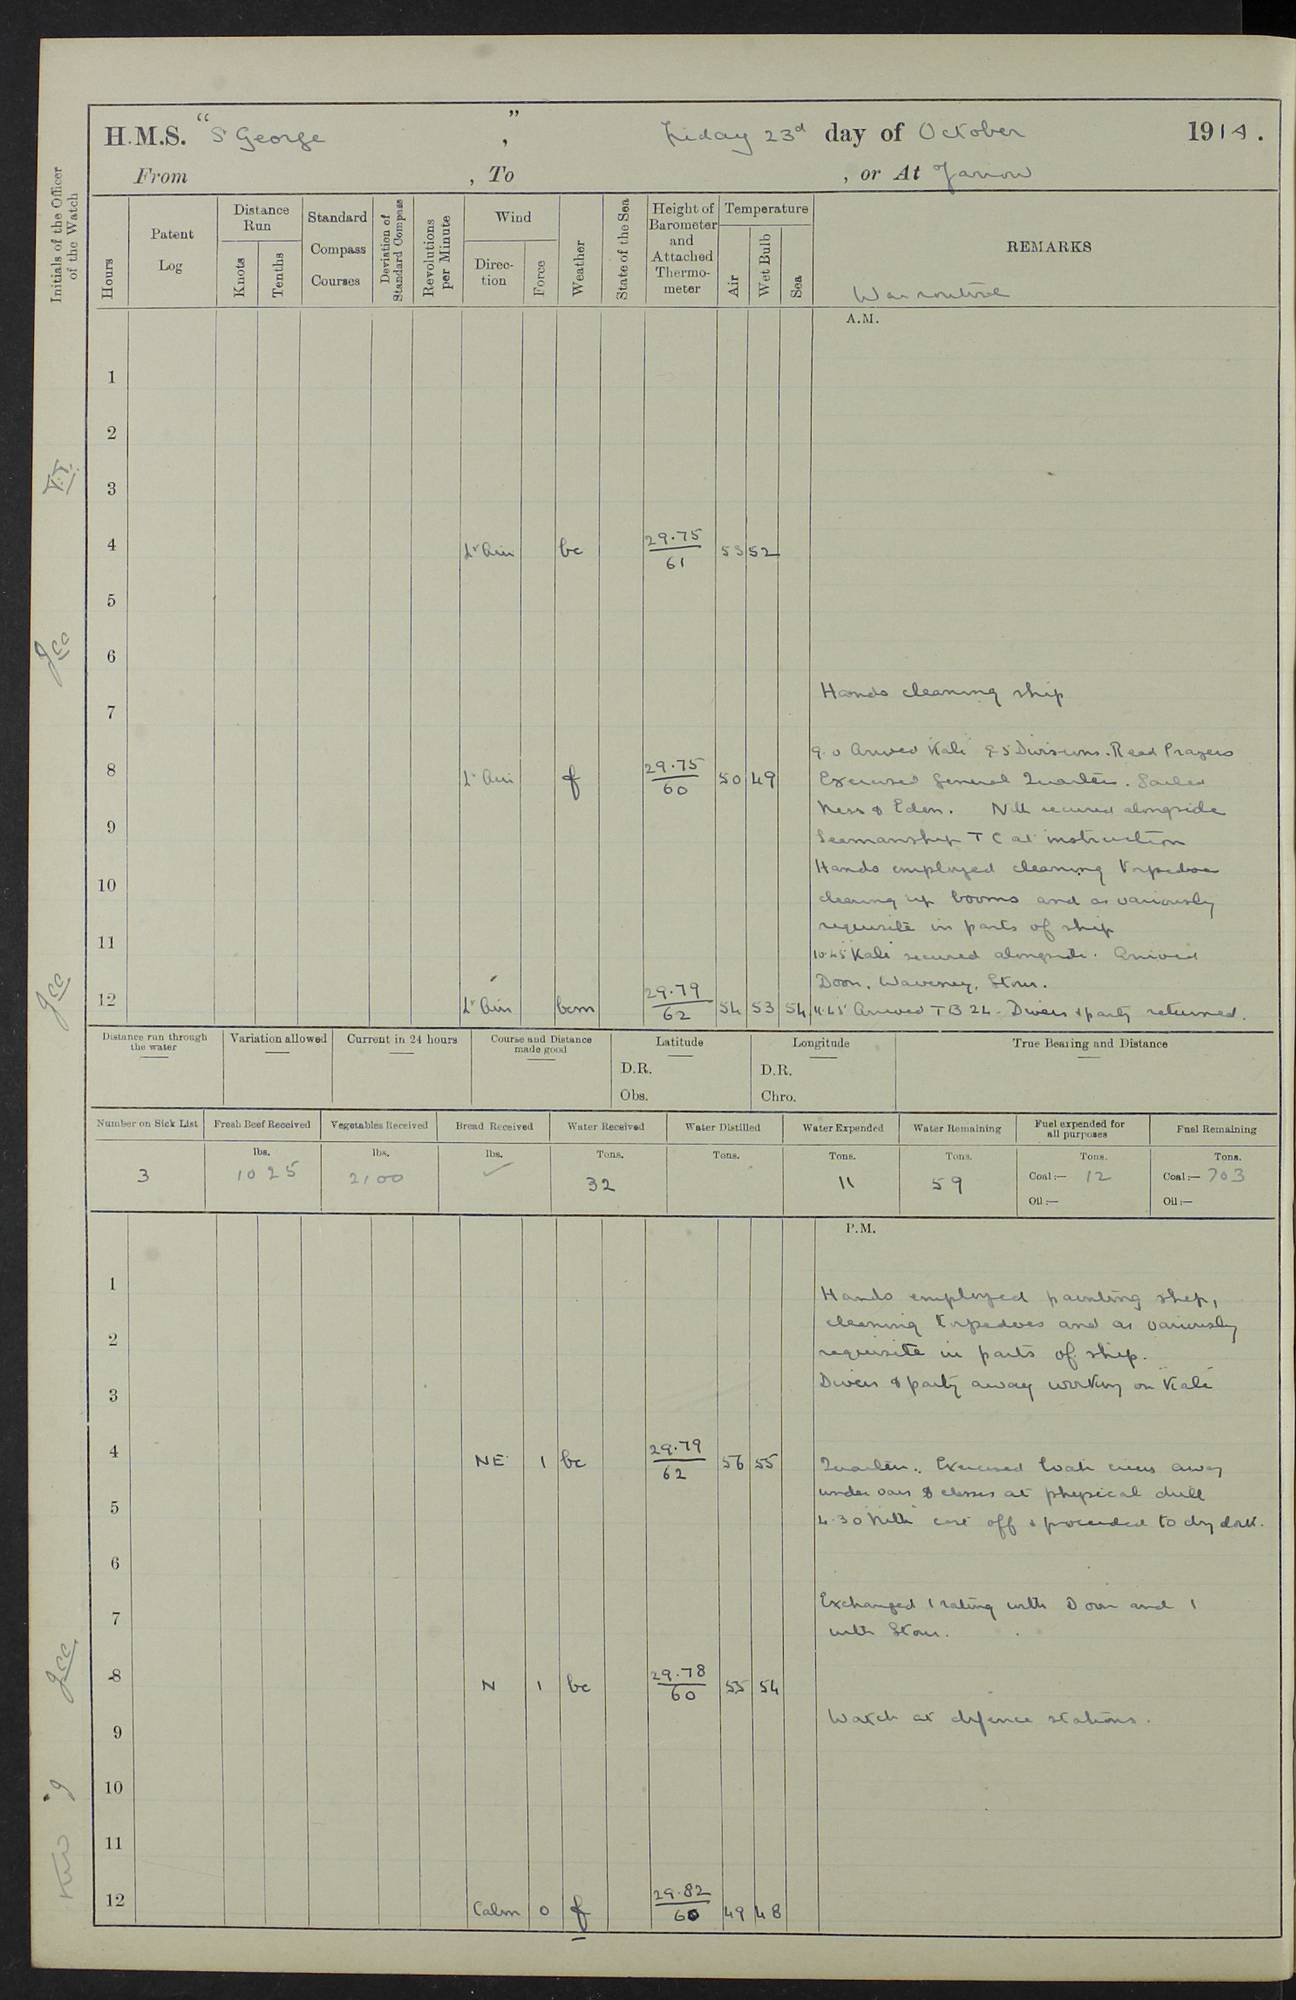 H.M.S. "St George", Friday 23d day of October 1914.
From , To , or At Jarrow
Initials of the Officer of the Watch
Hours
Patent Log
Distance Run
Knots
Tenths
Standard Compass Courses
Deviation of Standard Compass
Revolutions per Minute
Wind
Direction
Force
Weather
State of the Sea
Height of Barometer and Attached Thermometer
Temperature
Air
Wet Bulb
Sea
REMARKS
War routine
A.M.
1
2
3
4 Lt Air bc 29.75/61 53 52
5
6
Hands cleaning ship
7
9.0 Arrived Kale 9.5 Divisions. Read Prayers
8 Lt Air f 29.75/60 50 49
Exercised General Quarters. Sailed
Ness & Eden. Nith secured alongside
9
Seamanship TC at instruction
Hands employed cleaning torpedoes
10
clearing up booms and as variously
requisite in parts of ship
11
10.45 Kale secured alongside. Arrived
Doon, Waveney, Stour.
12 Lt Air bcm 29.79/62 54 53 54
11.45 Arrived TB 24. Divers & party returned.
Distance run through the water
Variation allowed
Current in 24 hours
Course and Distance made good
Latitude
D.R.
Obs.
Longitude
D.R.
Chro.
True Bearing and Distance
Number on Sick List
3
Fresh Beef Received
lbs.
1025
Vegetables Received
lbs.
2100
Bread Received
lbs.
Water Received
Tons.
32
Water Distilled
Tons.
Water Expended
Tons.
11
Water Remaining
Tons.
59
Fuel expended for all purposes
Tons.
Coal:— 12
Oil:—
Fuel Remaining
Tons.
Coal:— 703
Oil:—
P.M.
1
Hands employed painting ship,
cleaning torpedoes and as variously
2
requisite in parts of ship.
Divers & party away working on "Kale"
3
4 NE 1 bc 29.79/62 56 55
Quarters. Exercised boats crews away
under oars & classes at physical drill
5
4.30 Nith cast off & proceeded to dry dock.
6
Exchanged 1 rating with Doon and 1
7
with Stour.
8 N 1 bc 29.78/60 55 54
Watch at defence stations.
9
10
11
12 Calm 0 f 29.82/60 49 48